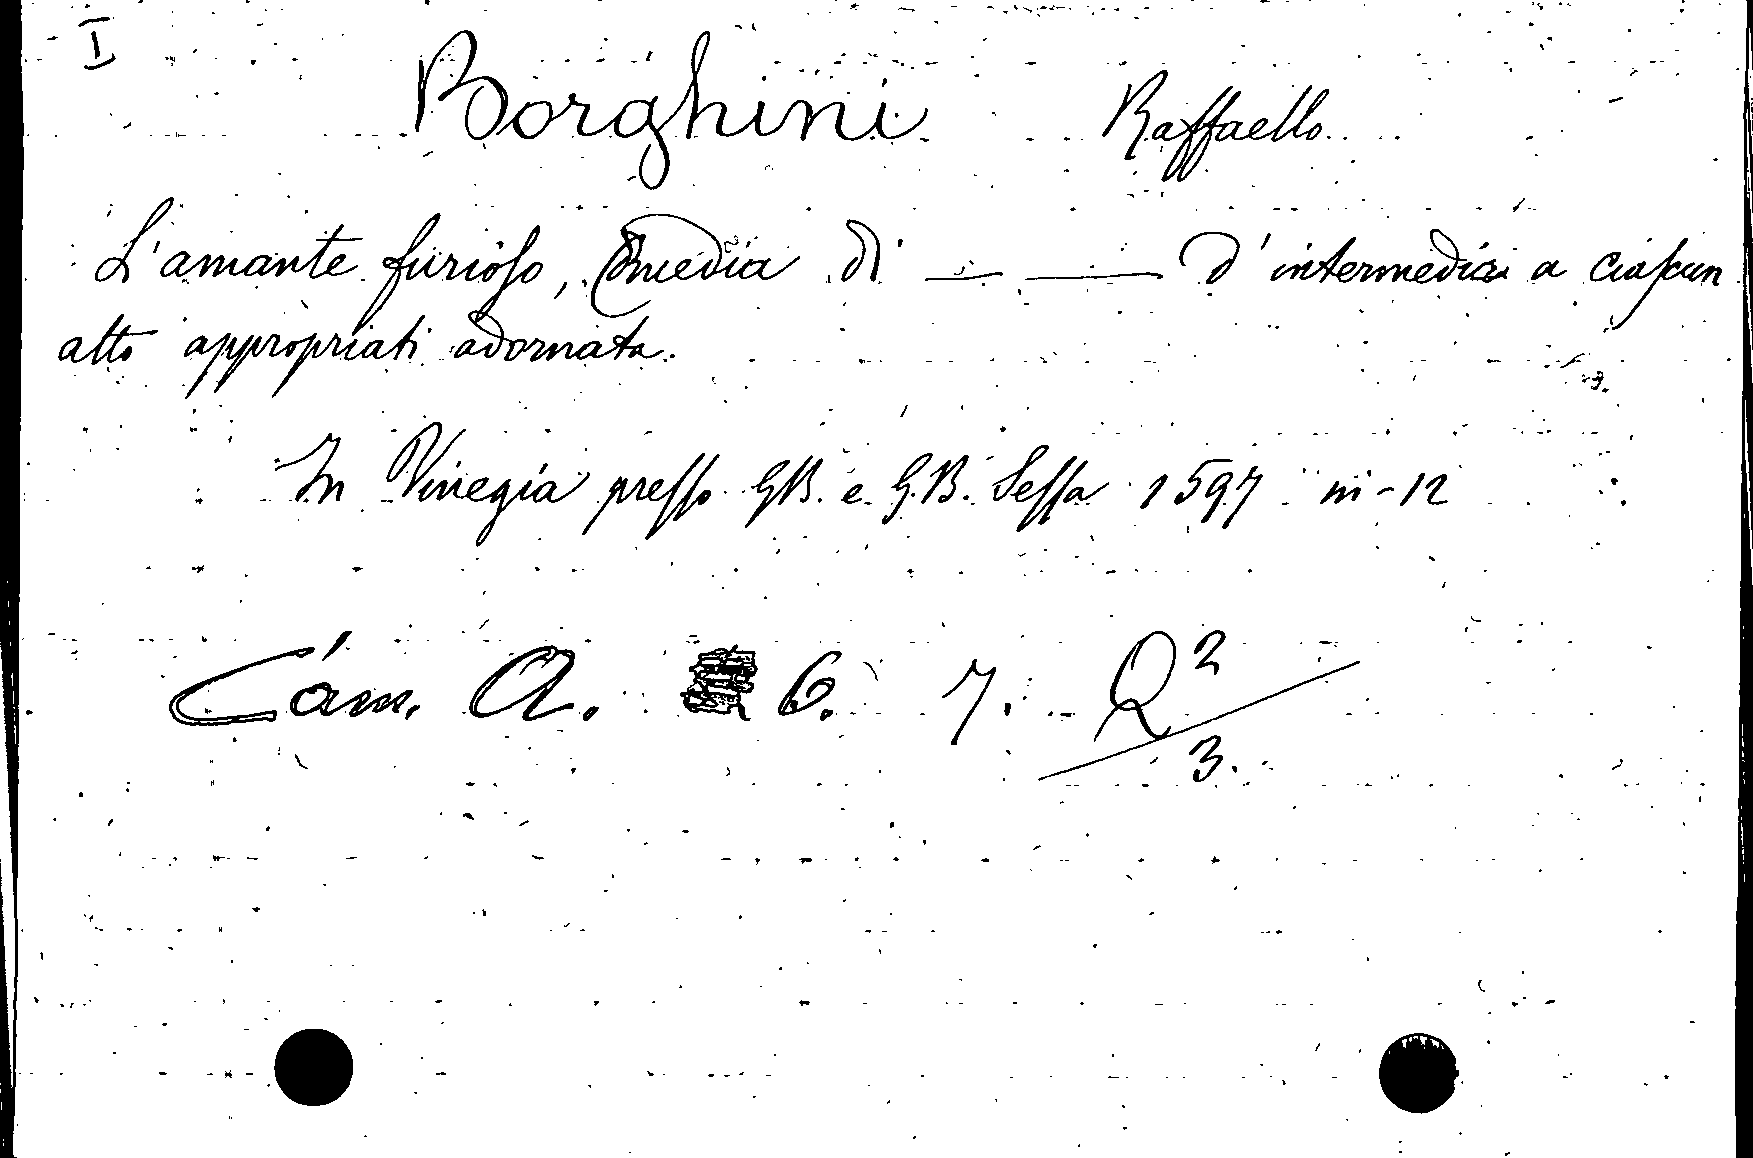 I
Borghini Raffaello
L'amante furioso, Comedia di — — d'intermedii a ciascun
atto appropriati adornata.
In Vinegia presso G.B. e G.B. Sessa 1597 in-12
Cám. A. 6. 7. Q²/3.